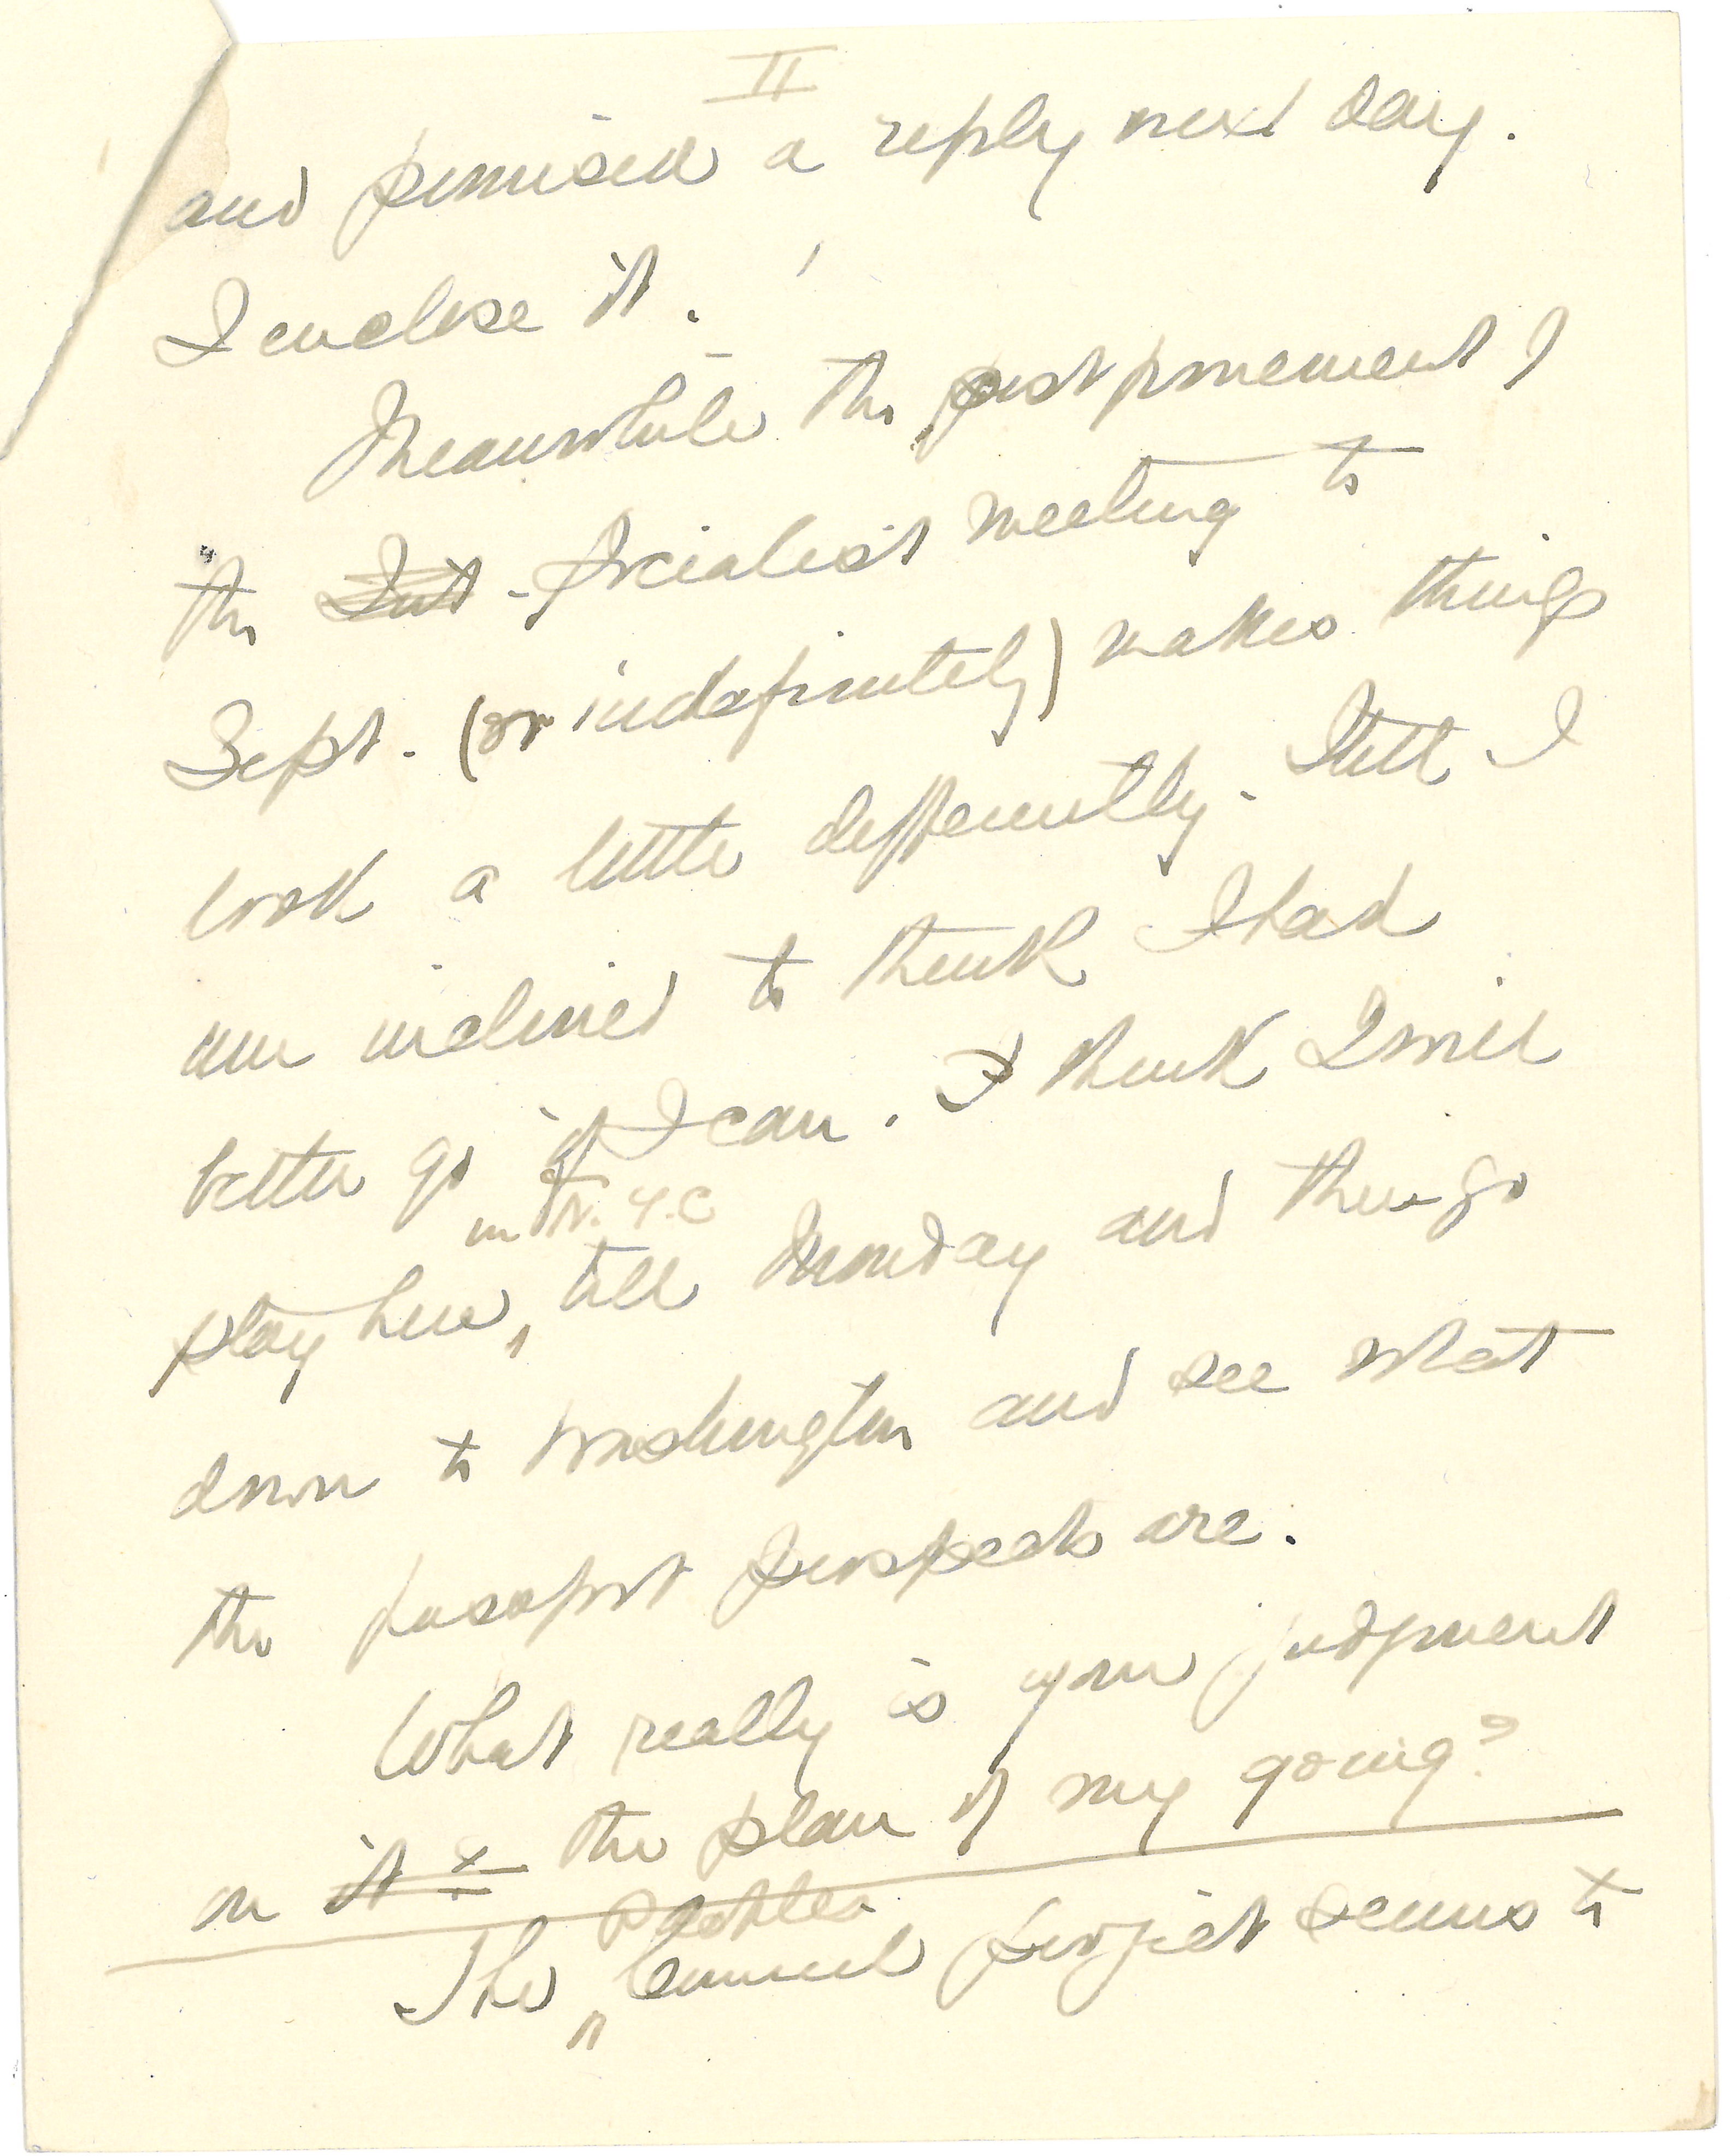 II
and promised a reply next day.
I enclose it.
Meanwhile the postponement of
the Int. Socialist meeting to
Sept. (or indefinitely) makes things
look a little differently. Still I
am inclined to think I had
better go if I can. I think I will
in N.Y.C
stay here, till Monday and then go
down to Washington and see what
the passport prospects are.
What really is your judgment
on it the plan of my going?
The Council project seems to